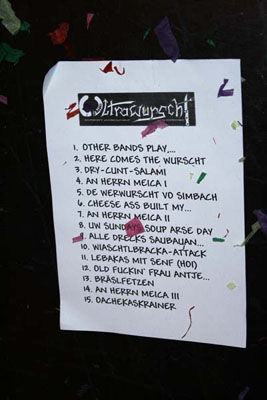 Ultrawurscht
1. OTHER BANDS PLAY,...
2. HERE COMES THE WURSCHT
3. DRY-CUNT-SALAMI
4. AN HERRN MEICA I
5. DE WERWURSCHT VO SIMBACH
6. CHEESE ASS BUILT MY...
7. AN HERRN MEICA II
8. UW SUNDAYS SOUP ARSE DAY
9. ALLE DRECKS SAUBAUAN...
10. WIASCHTLBRACKA-ATTACK
11. LEBAKAS MIT SENF (HOI)
12. OLD FUCKIN' FRAU ANTJE...
13. BRÄSLFETZEN
14. AN HERRN MEICA III
15. OACHEKASKRAINER